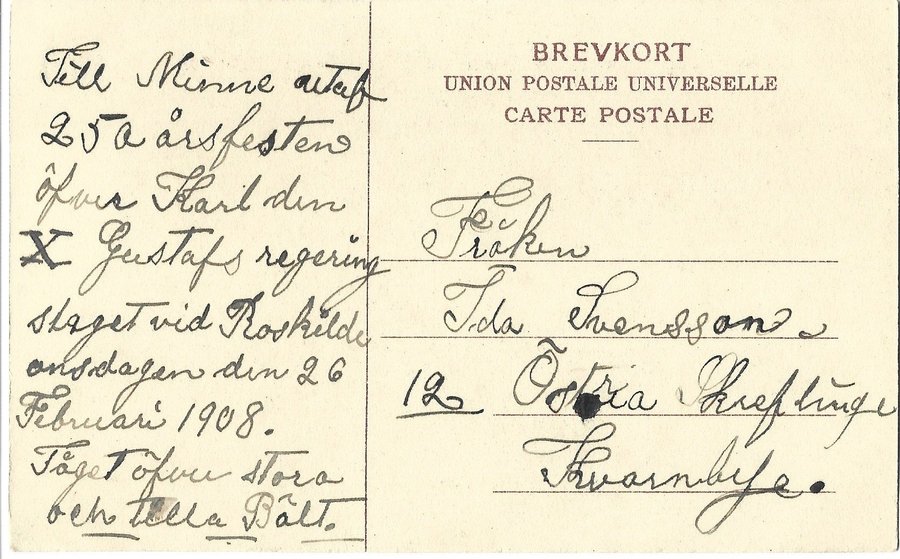 Till Minne utaf
250 årsfesten
öfver Karl den
X Gustafs regering
slaget vid Roskilde
onsdagen den 26
Februari 1908.
Tåget öfver stora
och lilla Bält.
BREVKORT
UNION POSTALE UNIVERSELLE
CARTE POSTALE
Fröken
Ida Svensson.
12 Östra Skreflinge
Kvarnbye.